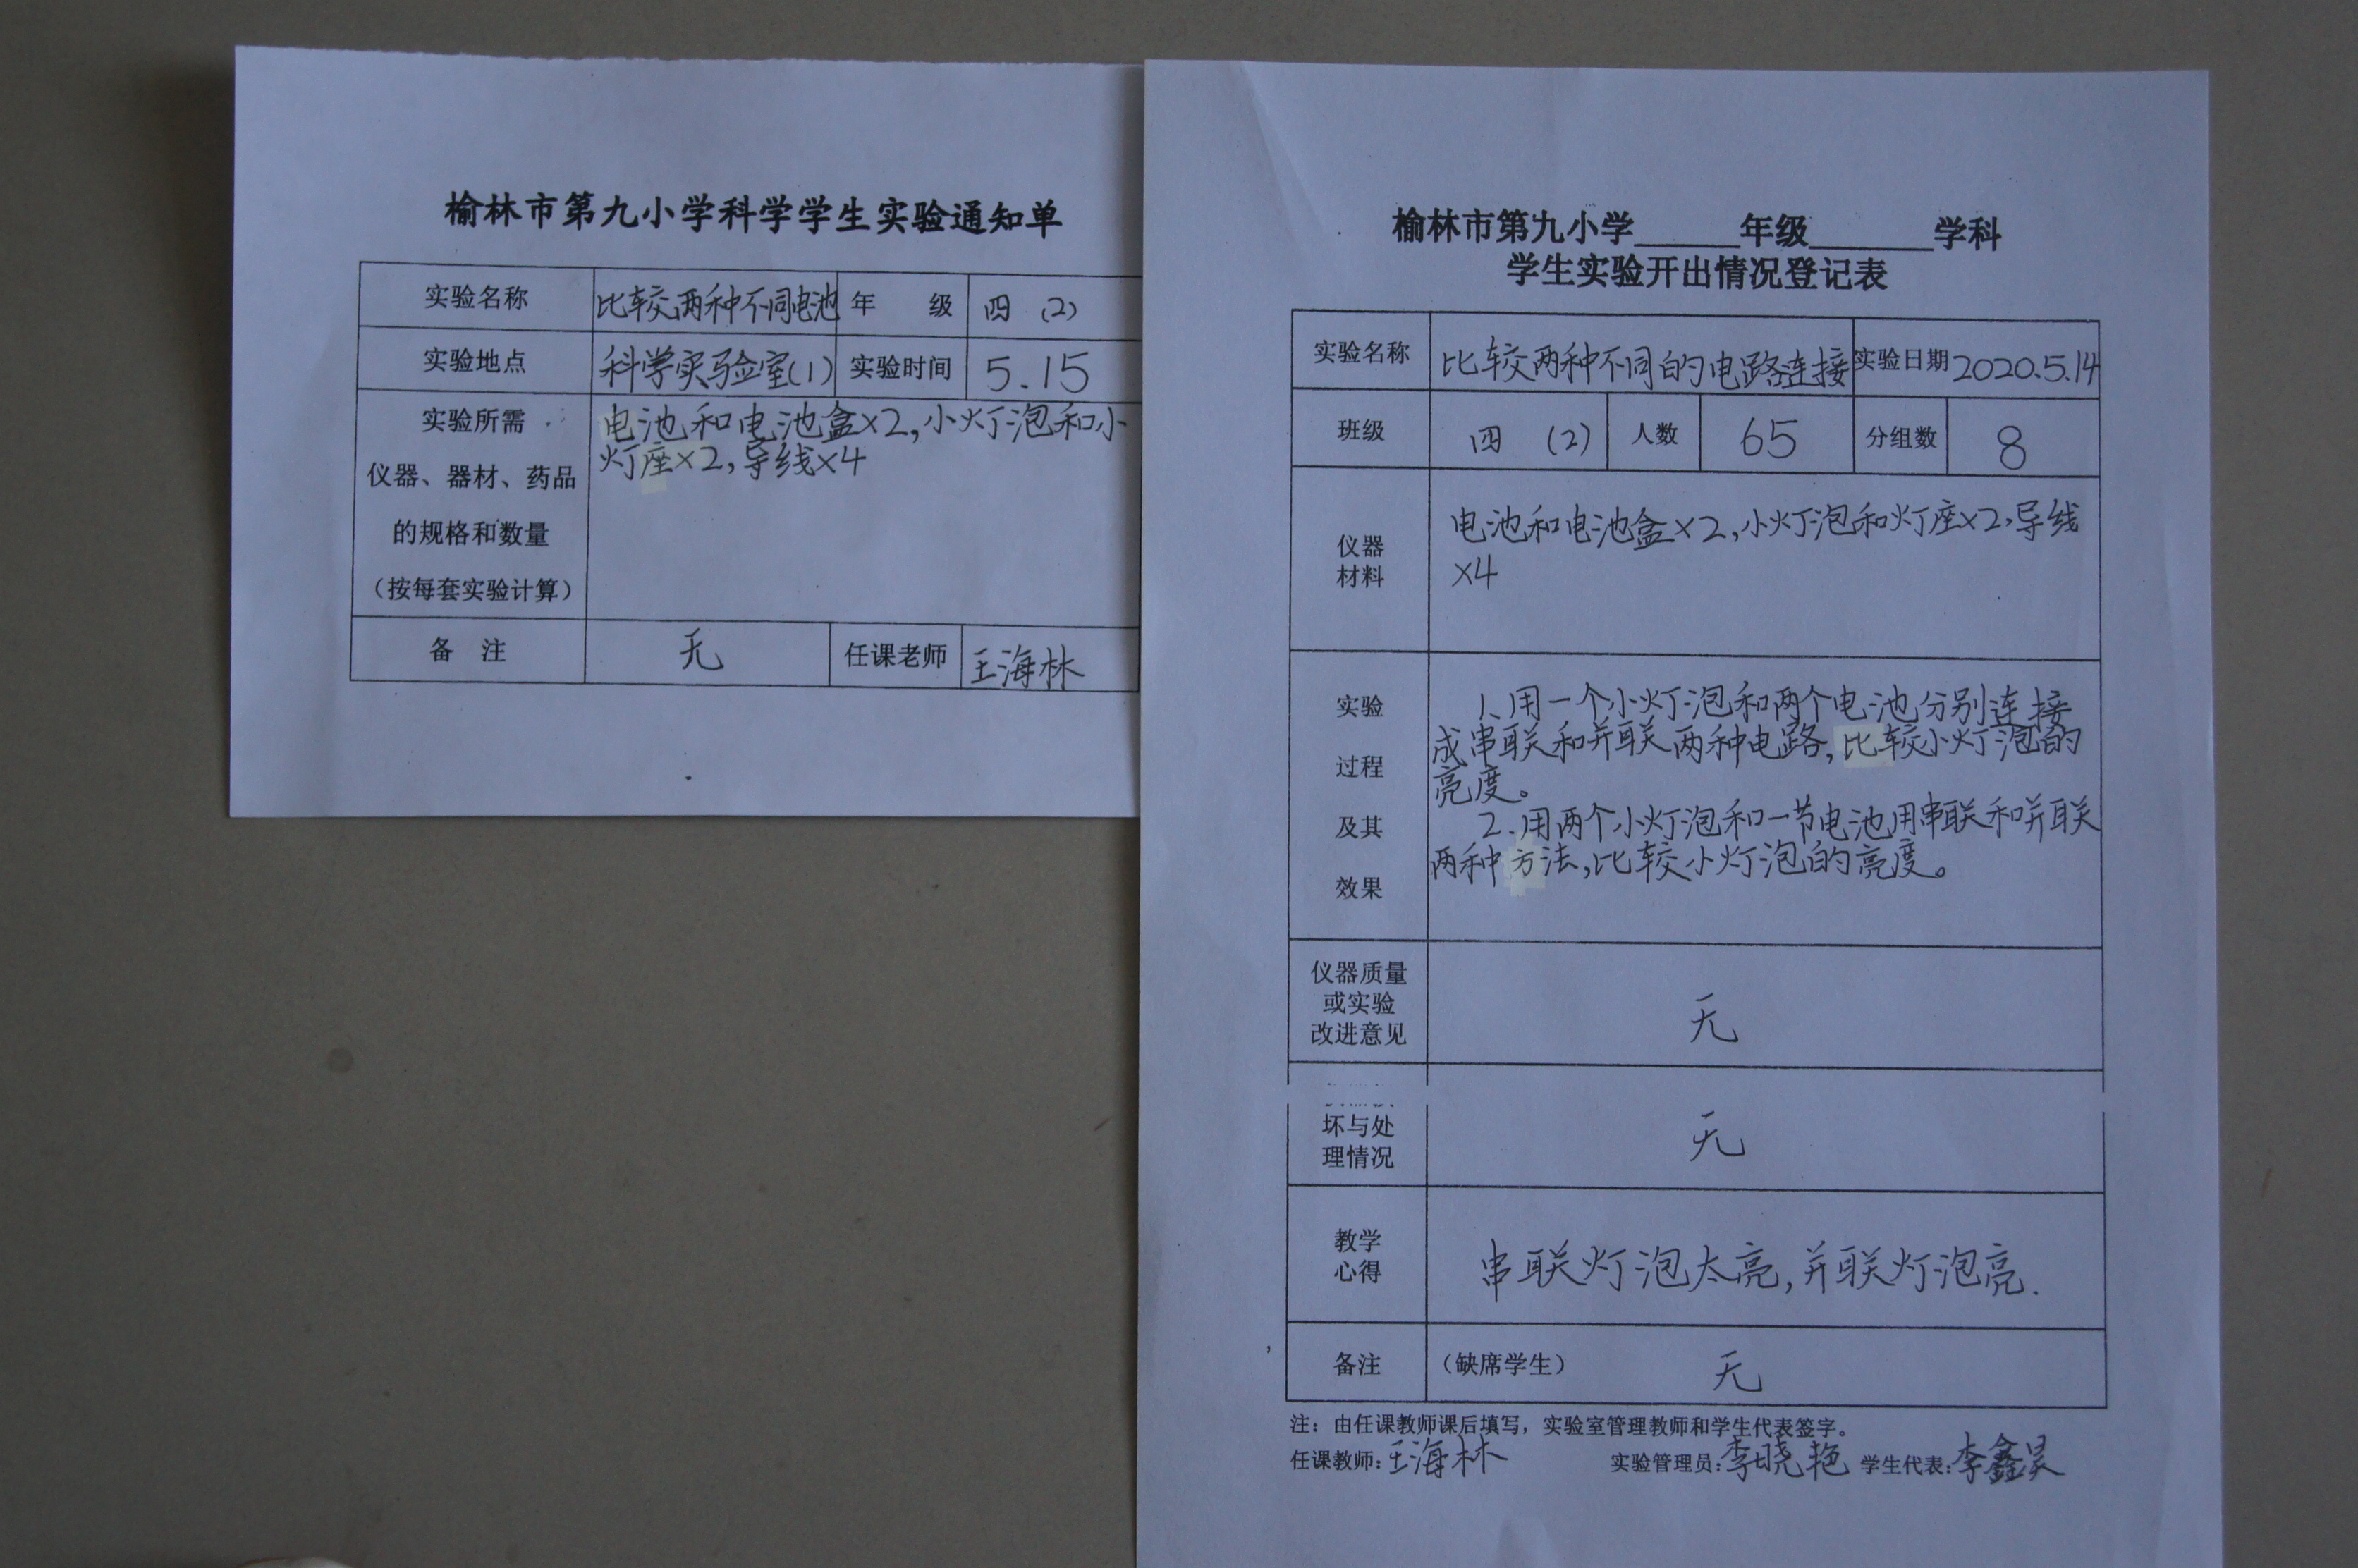 榆林市第九小学科学学生实验通知单
实验名称 比较两种不同电池 年 级 四 (2)
实验地点 科学实验室(1) 实验时间 5.15
实验所需
仪器、器材、药品
的规格和数量
（按每套实验计算）
电池和电池盒×2,小灯泡和小
灯座×2,导线×4
备 注 无 任课老师 王海林
榆林市第九小学______年级_______学科
学生实验开出情况登记表
实验名称 比较两种不同的电路连接 实验日期 2020.5.14
班级 四 (2) 人数 65 分组数 8
仪器
材料
电池和电池盒×2,小灯泡和灯座×2,导线
×4
实验
过程
及其
效果
1、用一个小灯泡和两个电池分别连接
成串联和并联两种电路,比较小灯泡的
亮度。
2.用两个小灯泡和一节电池用串联和并联
两种方法,比较小灯泡的亮度。
仪器质量
或实验
改进意见
无
坏与处
理情况
无
教学
心得
串联灯泡太亮,并联灯泡亮.
备注 （缺席学生） 无
注：由任课教师课后填写，实验室管理教师和学生代表签字。
任课教师:王海林 实验管理员:李晓艳 学生代表:李鑫昊